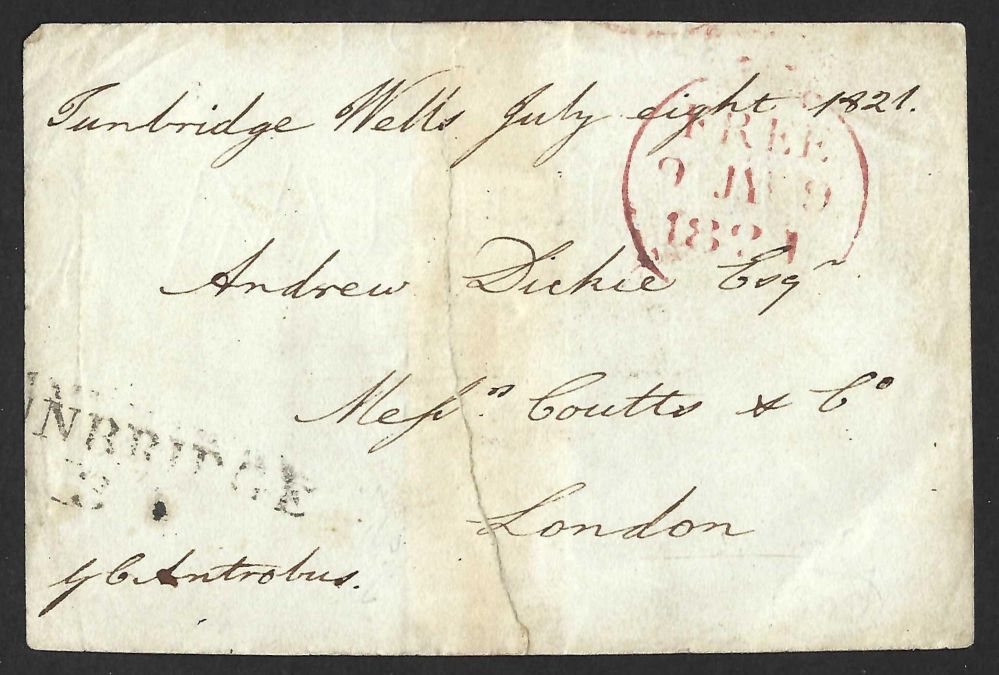 Tunbridge Wells July eight 1821.
FREE
9 JY 9
1821
Andrew Dickie Esqr
Messrs Coutts & Co
London
UNBRIDGE
Antrobus.